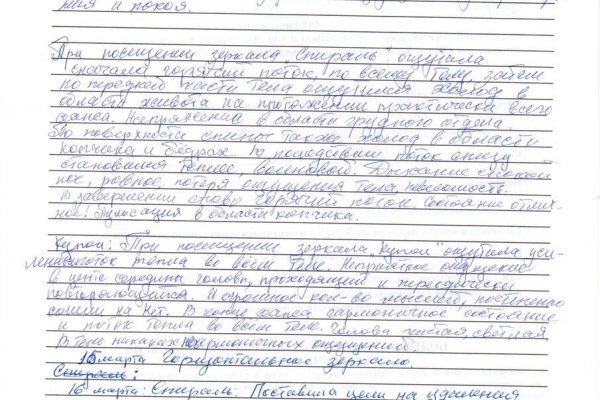 ния и покоя.
При посещении зеркала "Спираль" ощутила
сначала горячий поток, по всему телу, затем
по передней части тела ощущался холод в
области живота на протяжении практически всего
сеанса. Напряжение в области грудного отдела.
По поверхности спины также холод в области
копчика и бедрах. В последствии поток снизу
становился теплее, волновой. Дыхание спокой
ное, ровное, потеря ощущения тела, невесомость.
В завершении снова горячий поток. Состояние отлич-
ное. Пульсация в области копчика.
Купол: При посещении зеркала "Купол" ощутила уси-
ление поток тепла во всём теле. Неприятное ощущение
в центе середины головы, проходящий и периодически
повторяющийся. И огромное кол-во мыслей, постепенно
сошли на нет. В конце сеанса гармоничное состояние
и поток тепла во всём теле. Голова чистая, светлая
В теле никаких негармоничных ощущений.
15 марта Горизонтальное зеркало.
Спираль:
16 марта: Спираль. Поставила цели на удаления